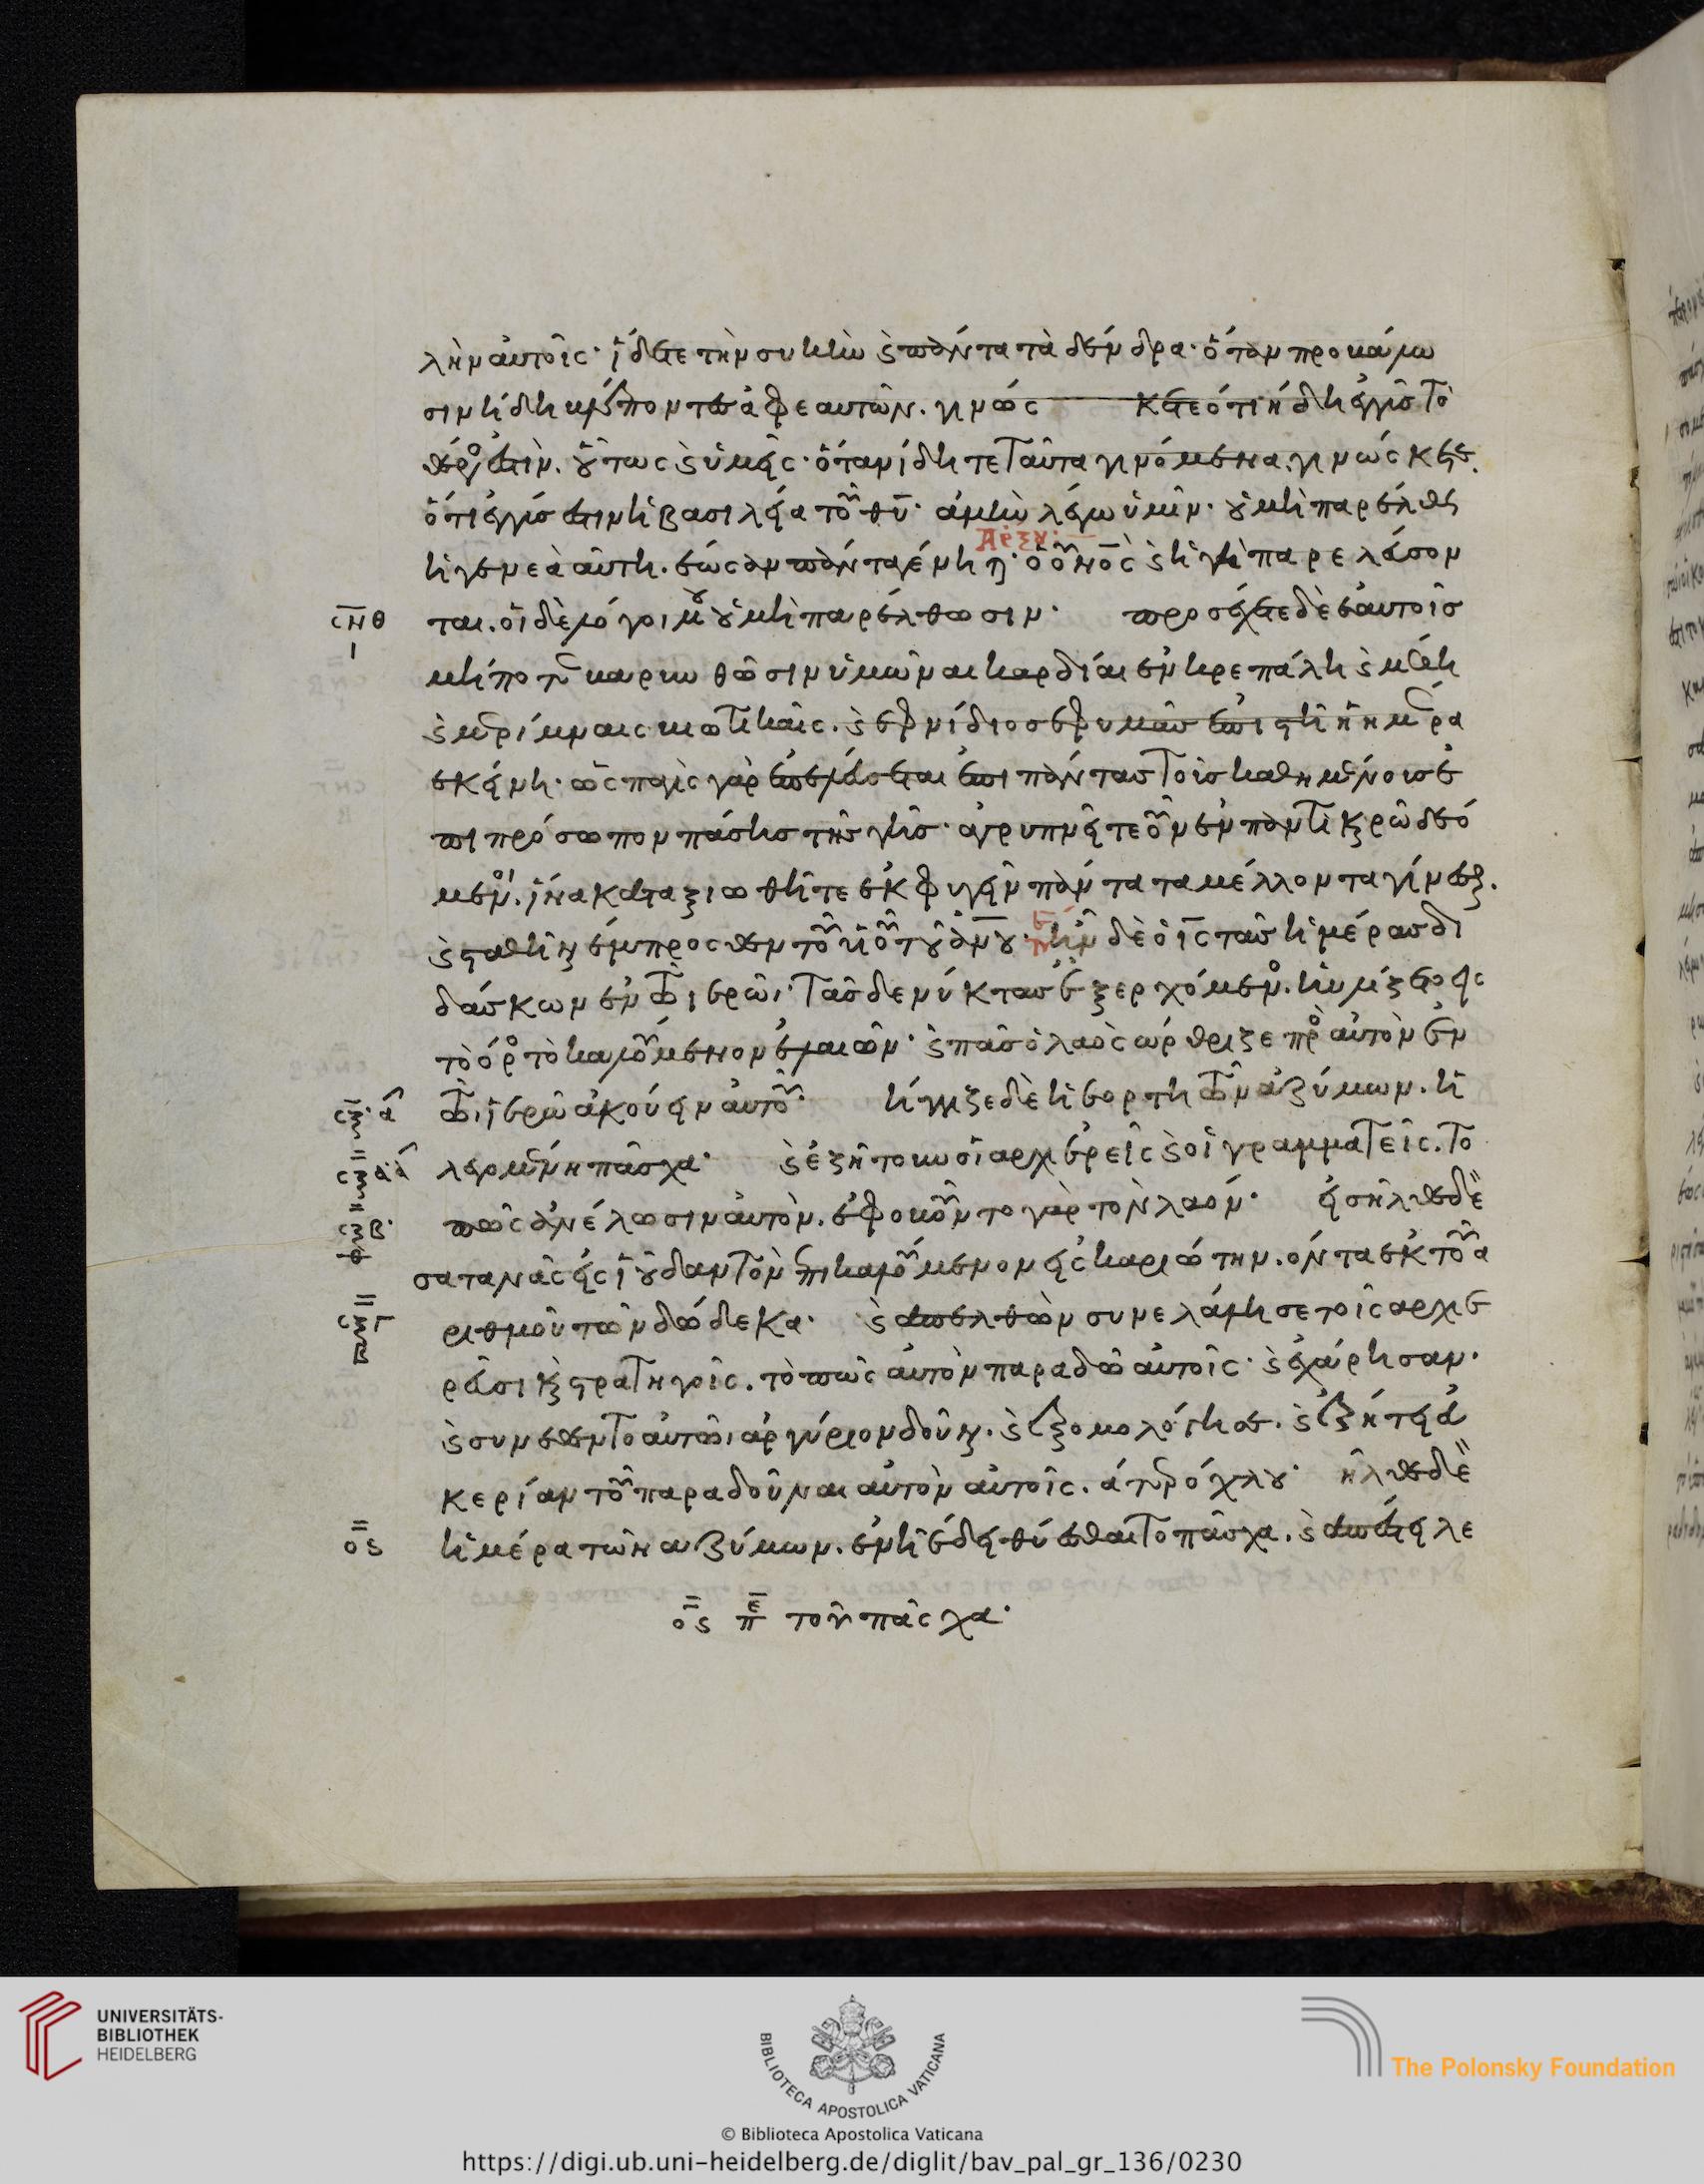 λὴν αὐτοῖς· ἴδετε τὴν συκὴν καὶ πάντα τὰ δένδρα· ὅταν προβάλω
σιν ἤδη βλέποντες ἀφ ἑαυτῶν. γινώσκετε ὅτι ἤδη ἐγγὺς τὸ
θέρος ἐστὶν. οὕτως καὶ ὑμεῖς· ὅταν ἴδητε ταῦτα γινόμενα. γινώσκετε.
ὅτι ἐγγύς ἐστιν ἡ βασιλεία τοῦ θῡ· ἀμὴν λέγω ὑμῖν· οὐ μὴ παρέλθη
ἡ γενεὰ αὕτη. ἕως ἂν πάντα γένηται· ὁ οὐνὸς καὶ ἡ γῆ παρελεύσον
σνθ
ι
ται. οἱ δὲ λόγοι μου οὐ μὴ παρέλθωσιν· προσέχετε δὲ ἑαυτοῖς
μήποτε βαρυνθῶσιν ὑμῶν αι καρδίαι ἐν κρεπάλη καὶ μέθη
καὶ μερίμναις βιωτικαῖς. καὶ ἐφνίδιος ἐφ υμᾶς ἐπιστῆ ἡ ἡμέρα
ἐκείνη· ὡς παγὶς γὰρ ἐπελεύσεται ἐπι πάντας τοὺς καθημένους ἐ
πι πρόσωπον πάσης τῆς γῆς· ἀγρυπνεῖτε οὖν ἐν παντὶ καιρῶ δεό
μενοι. ἵνα καταξιωθῆτε ἐκφυγεῖν πάντα τα μέλλοντα γίνεσθαι.
καὶ σταθῆναι ἔμπροσθεν τοῦ υἱοῦ τοῦ ἀνου· ἦν δὲ ὁ ις τὰς ἡμέρας δι
δάσκων ἐν τῶ ιερῶ· τὰς δε νύκτας ἐξερχόμενος. ηὐλίζετο εἰς
τὸ όρος τὸ καλούμενον ἐλαιῶν· καὶ πᾶς ὁ λαὸς ὤρθριζε πρὸς αὐτὸν ἐν
σξ·α
τῶ ἱερῶ ἀκούειν αὐτοῦ· ἤγγιζε δὲ ἡ ἑορτὴ τῶν ἀζύμων. ἡ
σξα
λεγομένη πάσχα· καὶ ἐζήτουν οἱ ἀρχιερεῖς καὶ οἱ γραμματεῖς. το
σξβ·
πῶς ἀνέλωσιν αὐτὸν. ἐφοβοῦντο γὰρ τὸν λαόν· εἰσῆλθε δὲ
σατανᾶς εἰς ἰούδαν τὸν ἐπικαλούμενον εἰσκαριώτην. ὄντα ἐκ τοῦ ἀ
σξγ
ριθμοῦ τῶν δώδεκα· καὶ ἀπελθὼν συνελάλησε τοῖς αρχιε
ρεῦσι καὶ στρατηγοῖς. τὸ πῶς αὐτὸν παραδῶ αὐτοῖς· καὶ ἐχάρησαν·
καὶ συνέθεντο αὐτῶ ἀργύριον δοῦναι. καὶ ἐξομολόγησε. καὶ ἐζήτει εὐ
κερίαν τοῦ παραδοῦναι αὐτὸν αὐτοῖς. ἄτερ όχλου· ῆλθε δὲ
ος
ἡ μέρα τῶν αζύμων. ἐν ἧ ἔδει θύεσθαι το πάσχα. καὶ ἀπέστειλε
ος π<sup>ε</sup> τοῦ πάσχα·
UNIVERSITÄTS-
BIBLIOTHEK
HEIDELBERG
BIBLIOTECA APOSTOLICA VATICANA
The Polonsky Foundation
© Biblioteca Apostolica Vaticana
https://digi.ub.uni-heidelberg.de/diglit/bav_pal_gr_136/0230